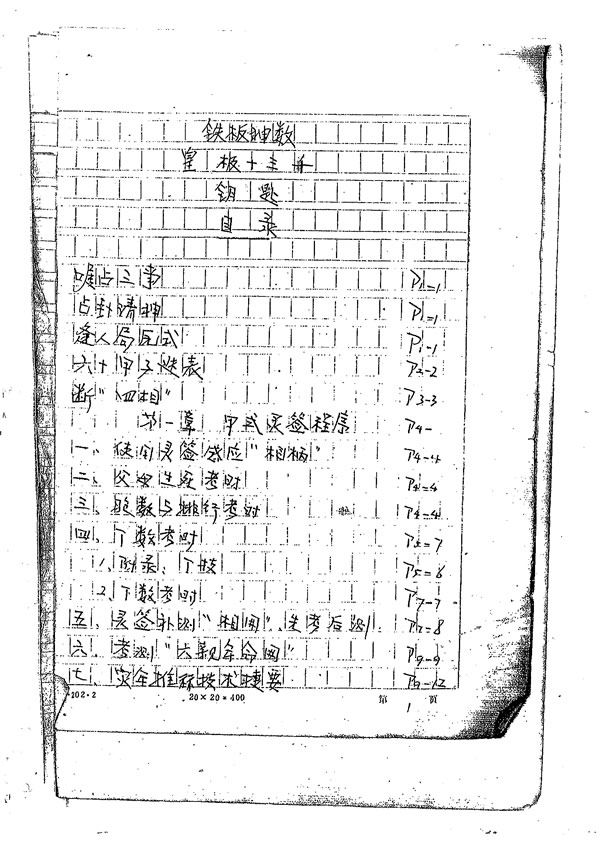 铁板神数
皇板十三册
钥匙
目录
占三事 P1-1
占卦请神 P1-1
逢人局瓦式 P1-1
六十甲子 表 P2-2
断“四相” P3-3
第一章 甲式灵签程序 P4-
一、使用灵签感应“相柄” P4-4
二、父母生死考时 P4-4
三、 数与排行考时 P4-4
四、个数考时 P5-7
1、附录：个数 P5-6
2、个数考时 P7-7
五、灵签补测“相同”，先考后测 P7-8
六、考测“六亲年命图” P9-9
七、灾年推标技术精要 P9-12
102·2 20×20=400 第 页
1